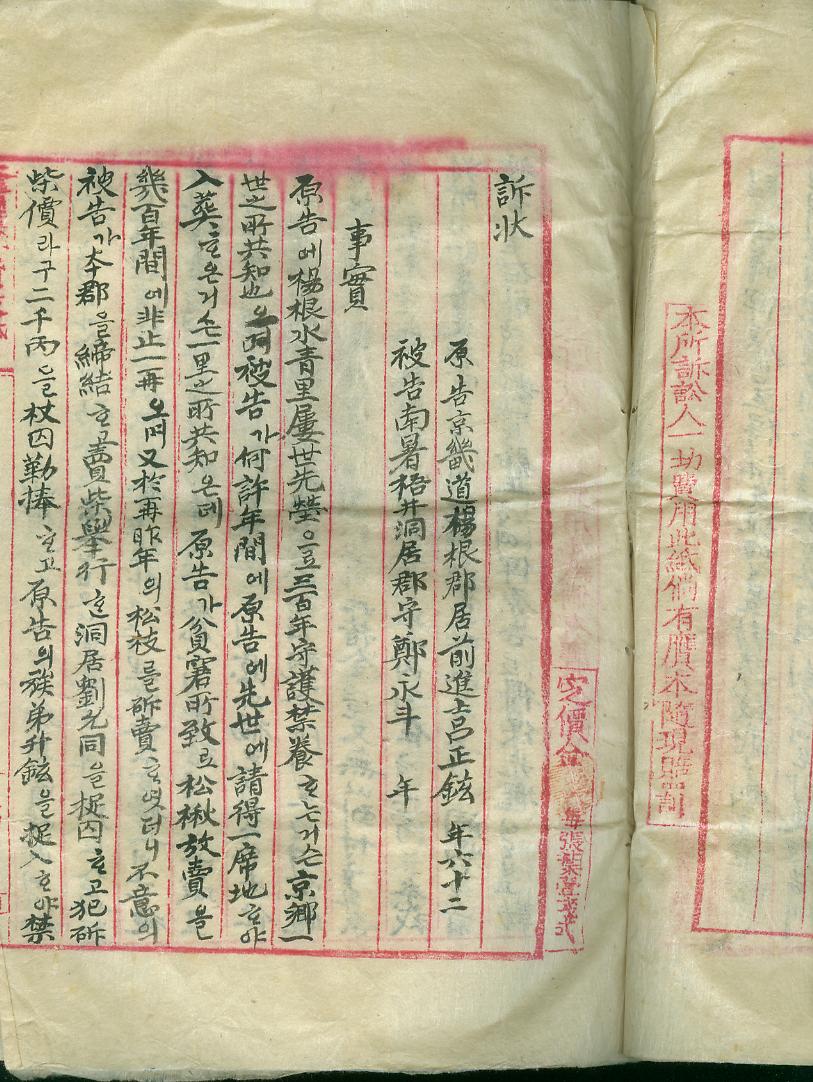 本所訴訟人一切費用此紙倘有贋本隨現賠罰
定價金 每張葉壹戔式
訴状
原告京畿道楊根郡居前進士呂正鉉 年六十二
被告南署梧井洞居郡守鄭永斗 年
事實
原告에楊根水青里屢世先塋으로三百年守護禁養ᄒᆞ는거슨京鄕一
世之所共知也으며被告가何許年間에原告에先世에請得一席地ᄒᆞ야
入葬ᄒᆞ온거슨一里之所共知온ᄃᆡ原告가貧窘所致로松楸放賣을
幾百年間에非止一再오며又於再昨年의松枝를斫賣ᄒᆞ엿더니不意의
被告가本郡을締結ᄒᆞ고賣柴擧行ᄒᆞᆫ洞居劉元同을捉囚ᄒᆞ고犯斫
柴價라구二千兩을杖囚勒捧ᄒᆞ고原告의族弟升鉉을捉入ᄒᆞ야禁